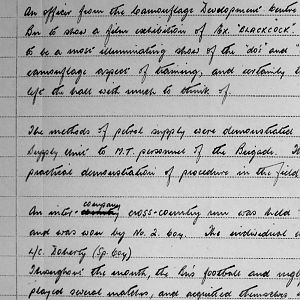 An officer from the Camouflage Development Centre
Bn to show a film exhibition of Ex. "BLACKCOCK".
to be a most illuminating show of the 'do's' and
camouflage aspect of training, and certainly
left the hall with much to think of.
The methods of petrol supply were demonstrated
Supply Unit to M.T. personnel of the Brigade. Th
practical demonstration of procedure in the field
company
An inter-country cross-country run was held
and was won by No. 2. Coy. The individual
L/c. Doherty (Sp. Coy)
Throughout the month, the Bns football and rug
played several matches, and acquitted themselves